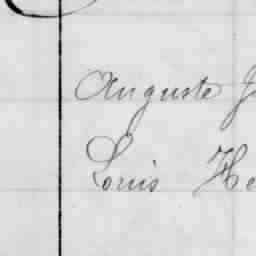 Auguste J
Louis He